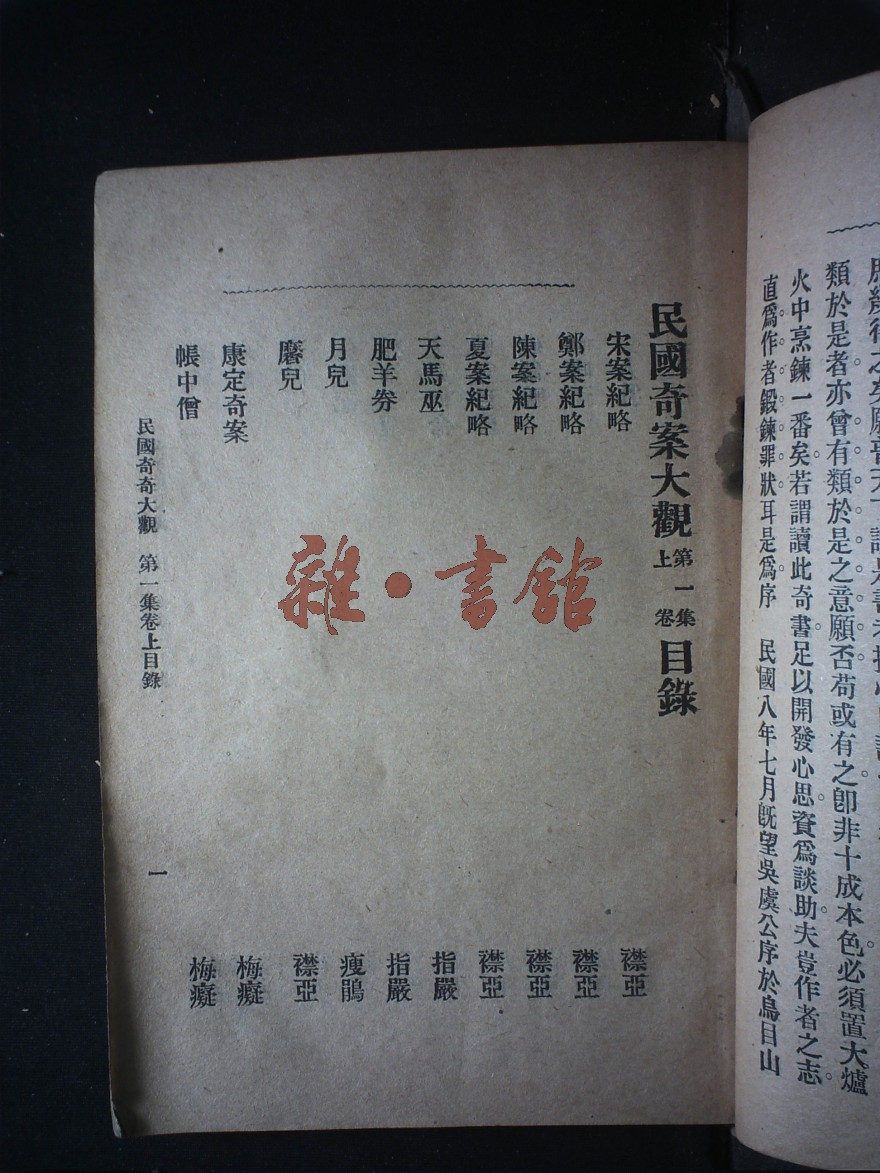 類於是者亦曾有類於是之意願否苟或有之卽非十成本色必須置大爐
火中烹鍊一番矣若謂讀此奇書足以開發心思資爲談助夫豈作者之志
直爲作者鍛鍊罪狀耳是爲序 民國八年七月旣望吳虞公序於烏目山
民國奇案大觀 第一集卷上 目錄
宋案紀略 襟亞
鄭案紀略 襟亞
陳案紀略 襟亞
夏案紀略 襟亞
天馬巫 指嚴
肥羊券 指嚴
月兒 瘦鵑
磨兒 襟亞
康定奇案 梅癡
帳中僧 梅癡
民國奇奇大觀 第一集卷上目錄 一
雜·書館